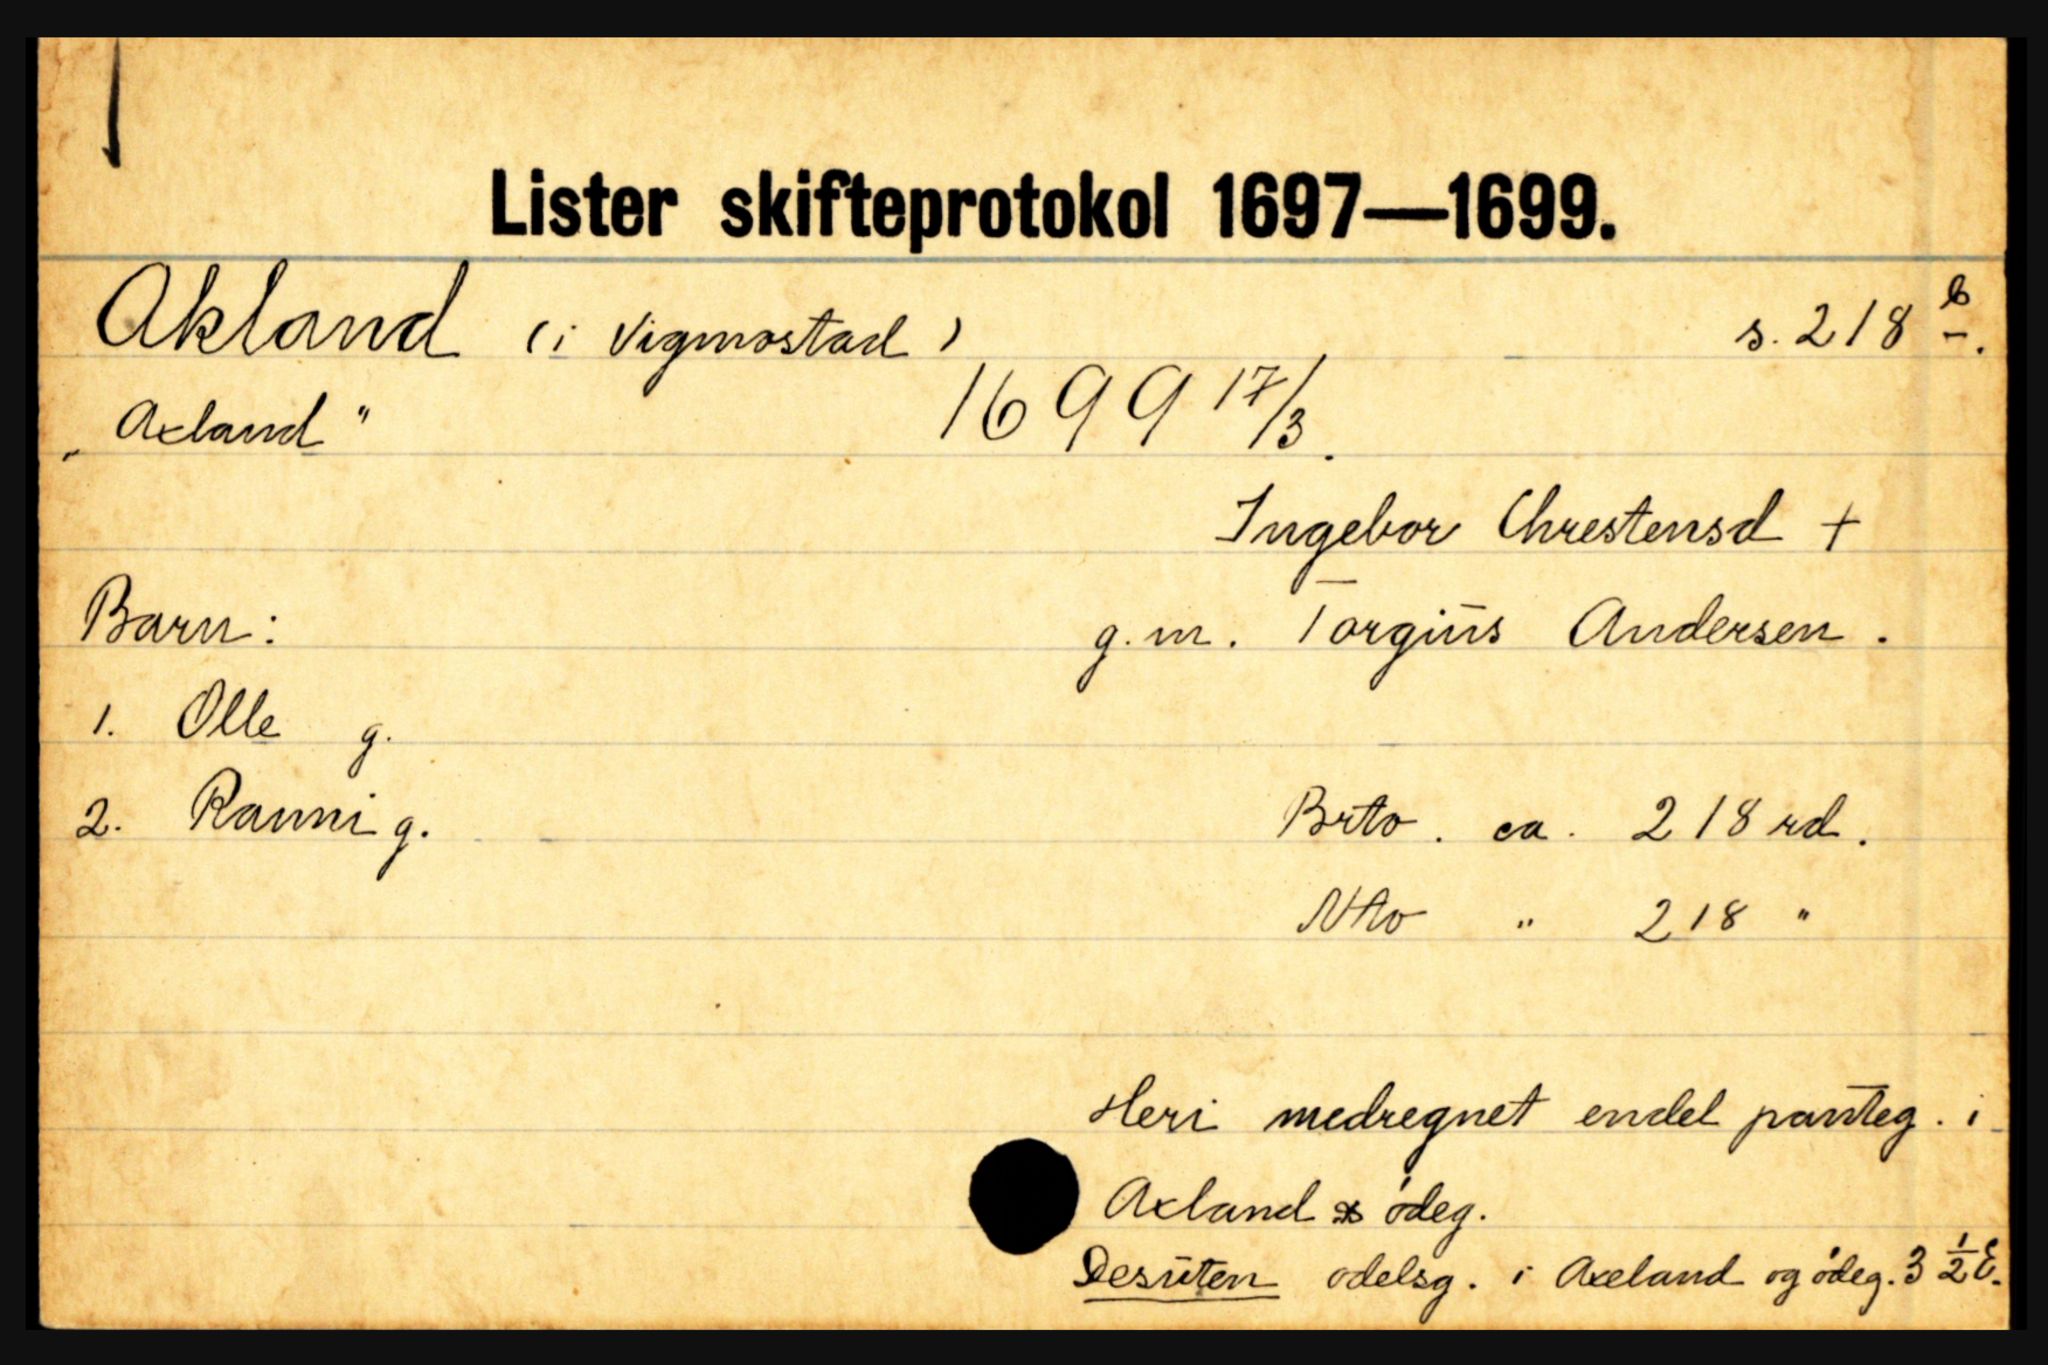 Lister skifteprotokol 1697—1699.
Akland (i Vigmostad) s. 218 b.
„Axland" 1699 17/3.
Ingebor Chrestensd +
Barn: g.m. Torgiüs Andersen.
1. Olle g.
2. Ranni g. Brto. ca. 218 rd.
Nto " 218 "
Heri medregnet endel panteg. i
Axland ødeg.
Desüten odelsg. i Axeland og ødeg. 3 1/2 E.